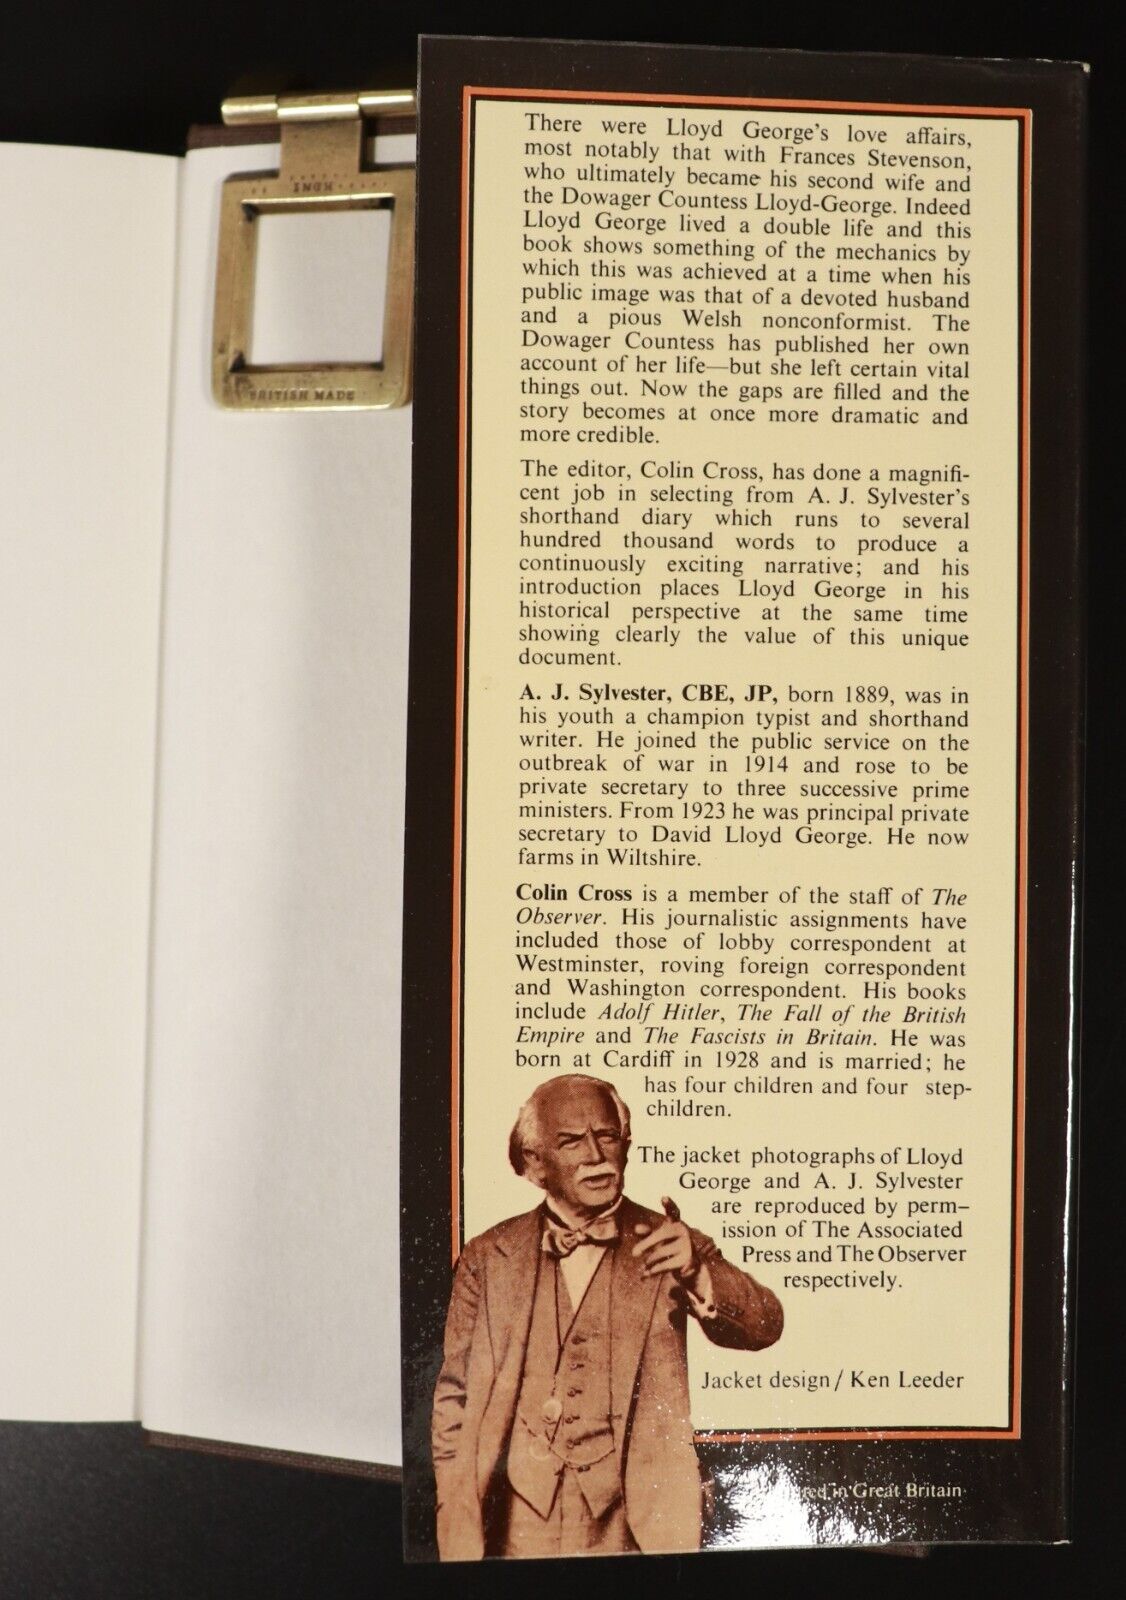 HOME
BRITISH MADE
There were Lloyd George's love affairs,
most notably that with Frances Stevenson,
who ultimately became his second wife and
the Dowager Countess Lloyd-George. Indeed
Lloyd George lived a double life and this
book shows something of the mechanics by
which this was achieved at a time when his
public image was that of a devoted husband
and a pious Welsh nonconformist. The
Dowager Countess has published her own
account of her life—but she left certain vital
things out. Now the gaps are filled and the
story becomes at once more dramatic and
more credible.
The editor, Colin Cross, has done a magnifi-
cent job in selecting from A. J. Sylvester's
shorthand diary which runs to several
hundred thousand words to produce a
continuously exciting narrative; and his
introduction places Lloyd George in his
historical perspective at the same time
showing clearly the value of this unique
document.
A. J. Sylvester, CBE, JP, born 1889, was in
his youth a champion typist and shorthand
writer. He joined the public service on the
outbreak of war in 1914 and rose to be
private secretary to three successive prime
ministers. From 1923 he was principal private
secretary to David Lloyd George. He now
farms in Wiltshire.
Colin Cross is a member of the staff of The
Observer. His journalistic assignments have
included those of lobby correspondent at
Westminster, roving foreign correspondent
and Washington correspondent. His books
include Adolf Hitler, The Fall of the British
Empire and The Fascists in Britain. He was
born at Cardiff in 1928 and is married; he
has four children and four step-
children.
The jacket photographs of Lloyd
George and A. J. Sylvester
are reproduced by perm-
ission of The Associated
Press and The Observer
respectively.
Jacket design / Ken Leeder
in Great Britain